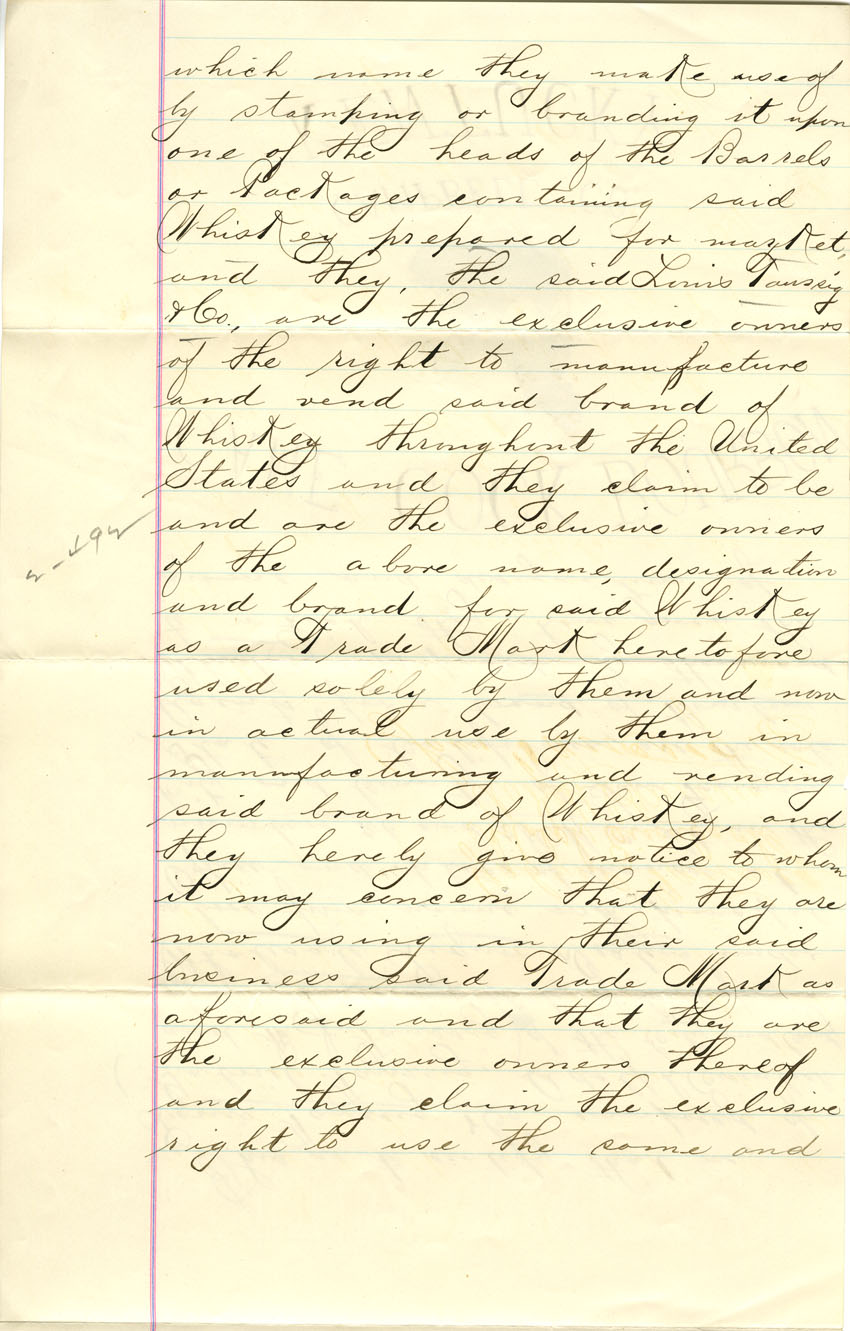 which name they make use of
by stamping or branding it upon
one of the heads of the Barrels
or Packages containing said
Whiskey prepared for market,
and they, the said Louis Taussig
& Co., are the exclusive owners
of the right to manufacture
and vend said brand of
Whiskey throughout the United
States and they claim to be
and are the exclusive owners
of the above name, designation
and brand for said Whiskey
as a Trade Mark heretofore
used solely by them and now
in actual use by them in
manufacturing and vending
said brand of Whiskey, and
they hereby give notice to whom
it may concern that they are
now using in their said
business said Trade Mark as
aforesaid and that they are
the exclusive owners thereof
and they claim the exclusive
right to use the same and